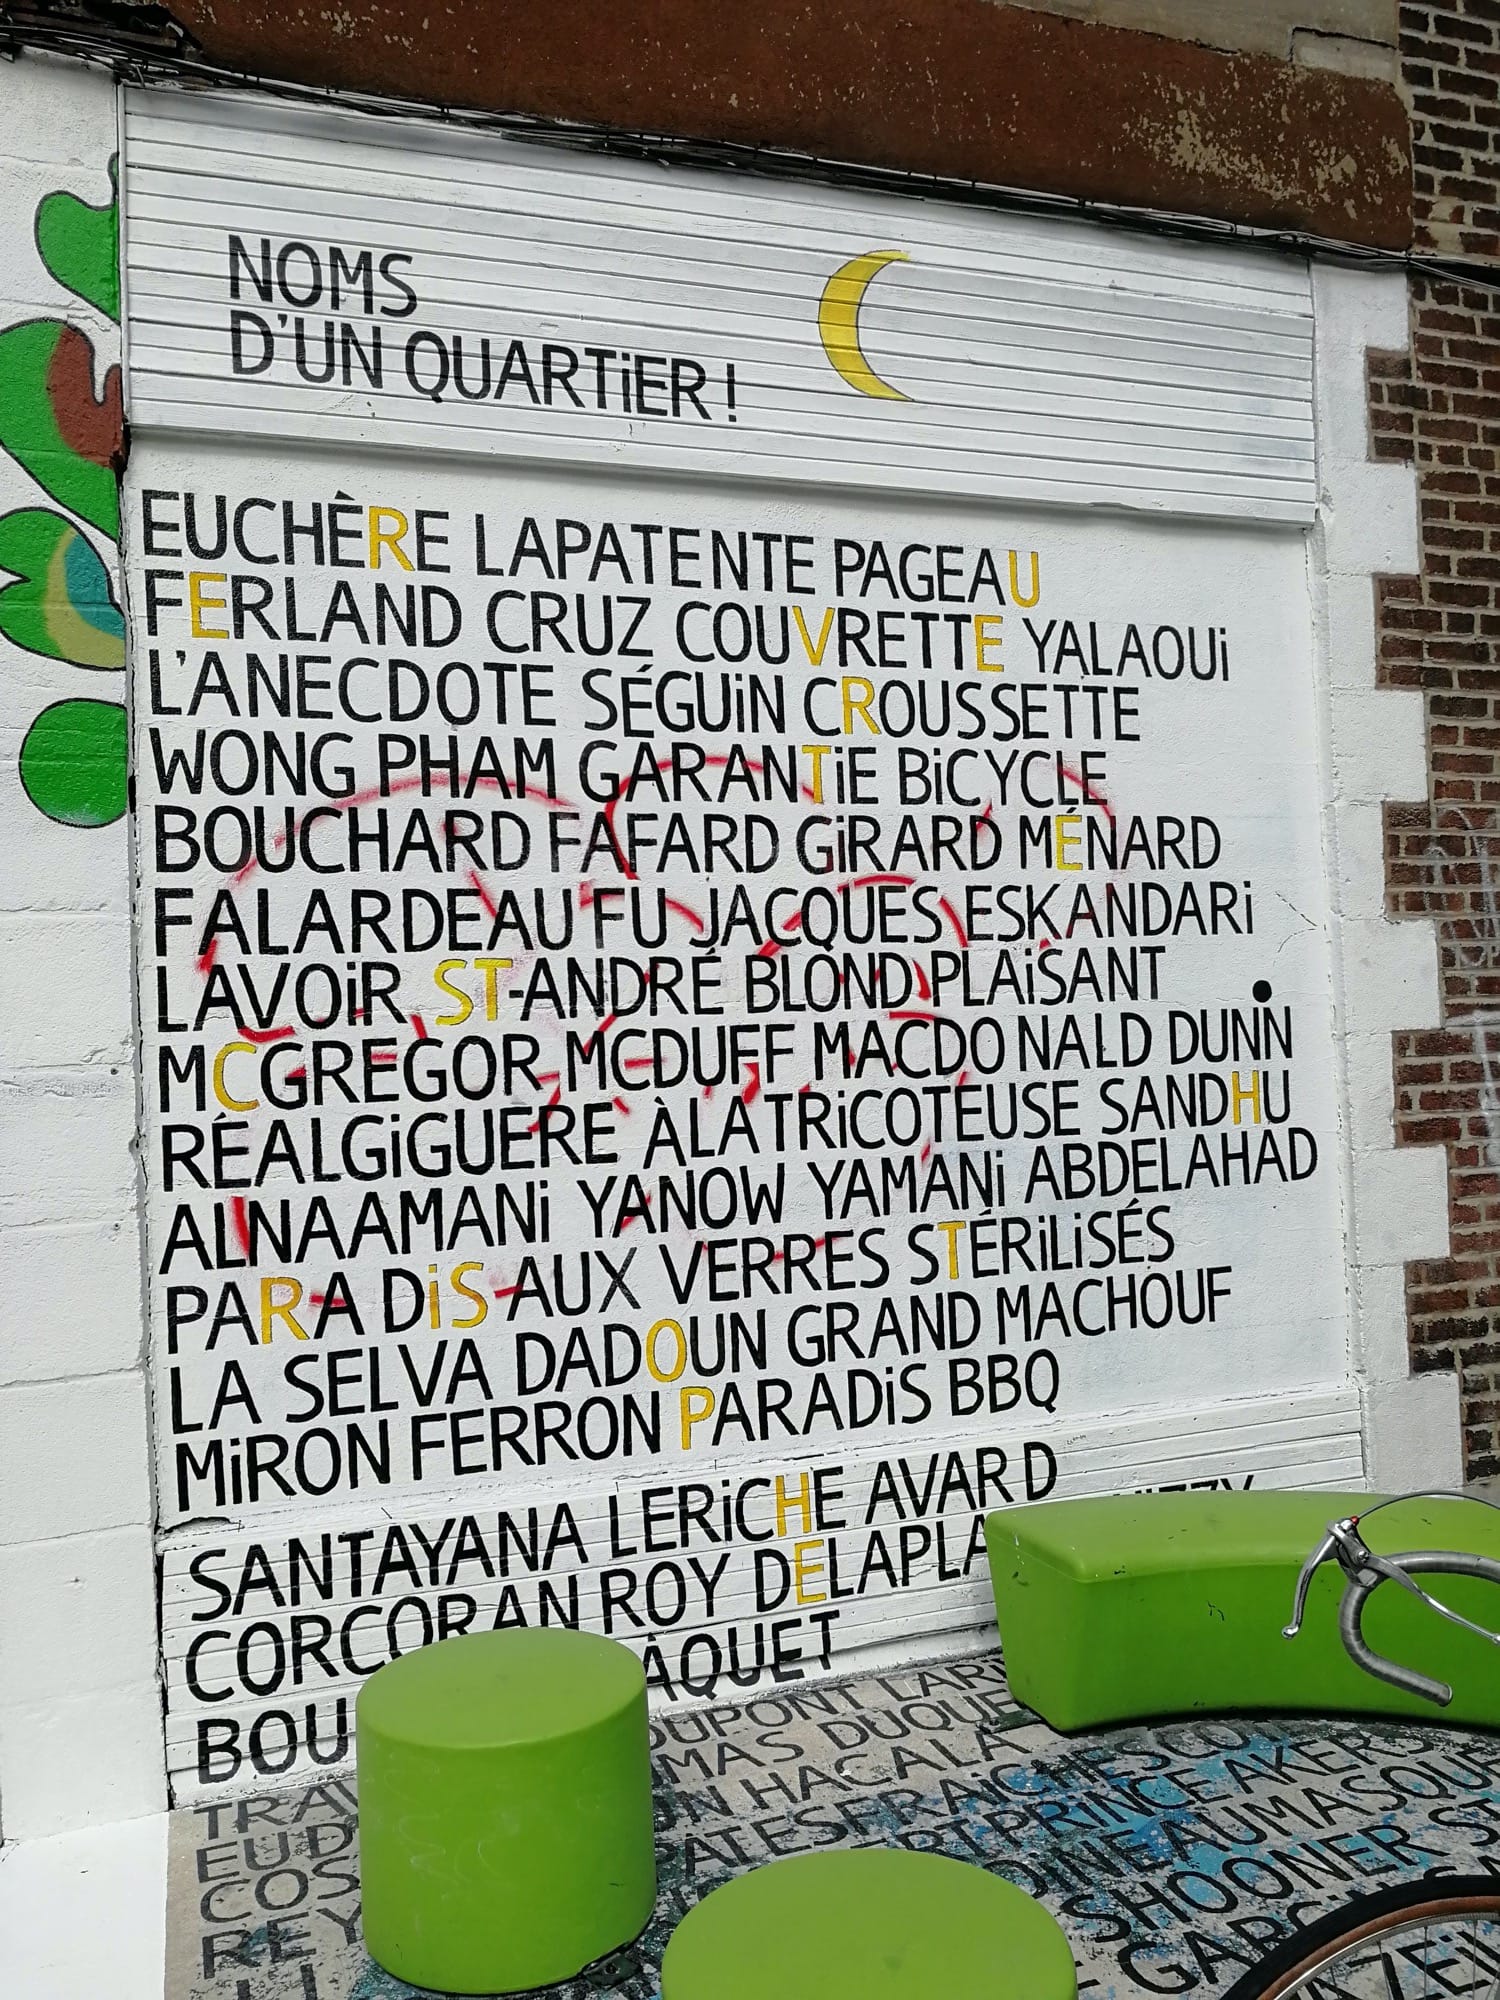 NOMS
D'UN QUARTiER !
EUCHÈRE LAPATENTE PAGEAU
FERLAND CRUZ COUVRETTE YALAOUi
L'ANECDOTE SÉGUiN CROUSSETTE
WONG PHAM GARANTiE BiCYCLE
BOUCHARD FAFARD GiRARD MÉNARD
FALARDEAU FU JACQUES ESKANDARi
LAVOiR ST-ANDRÉ BLOND PLAiSANT
MCGREGOR MCDUFF MACDONALD DUNN
RÉALGiGUERE ÀLATRiCOTEUSE SANDHU
ALNAAMANi YANOW YAMANi ABDELAHAD
PARADiS AUX VERRES STÉRiLiSÉS
LA SELVA DADOUN GRAND MACHOUF
MiRON FERRON PARADiS BBQ
SANTAYANA LERiCHE AVARD
CORCORAN ROY
DUQUE
HACALA
PRiNCE AKERS
SHOONER